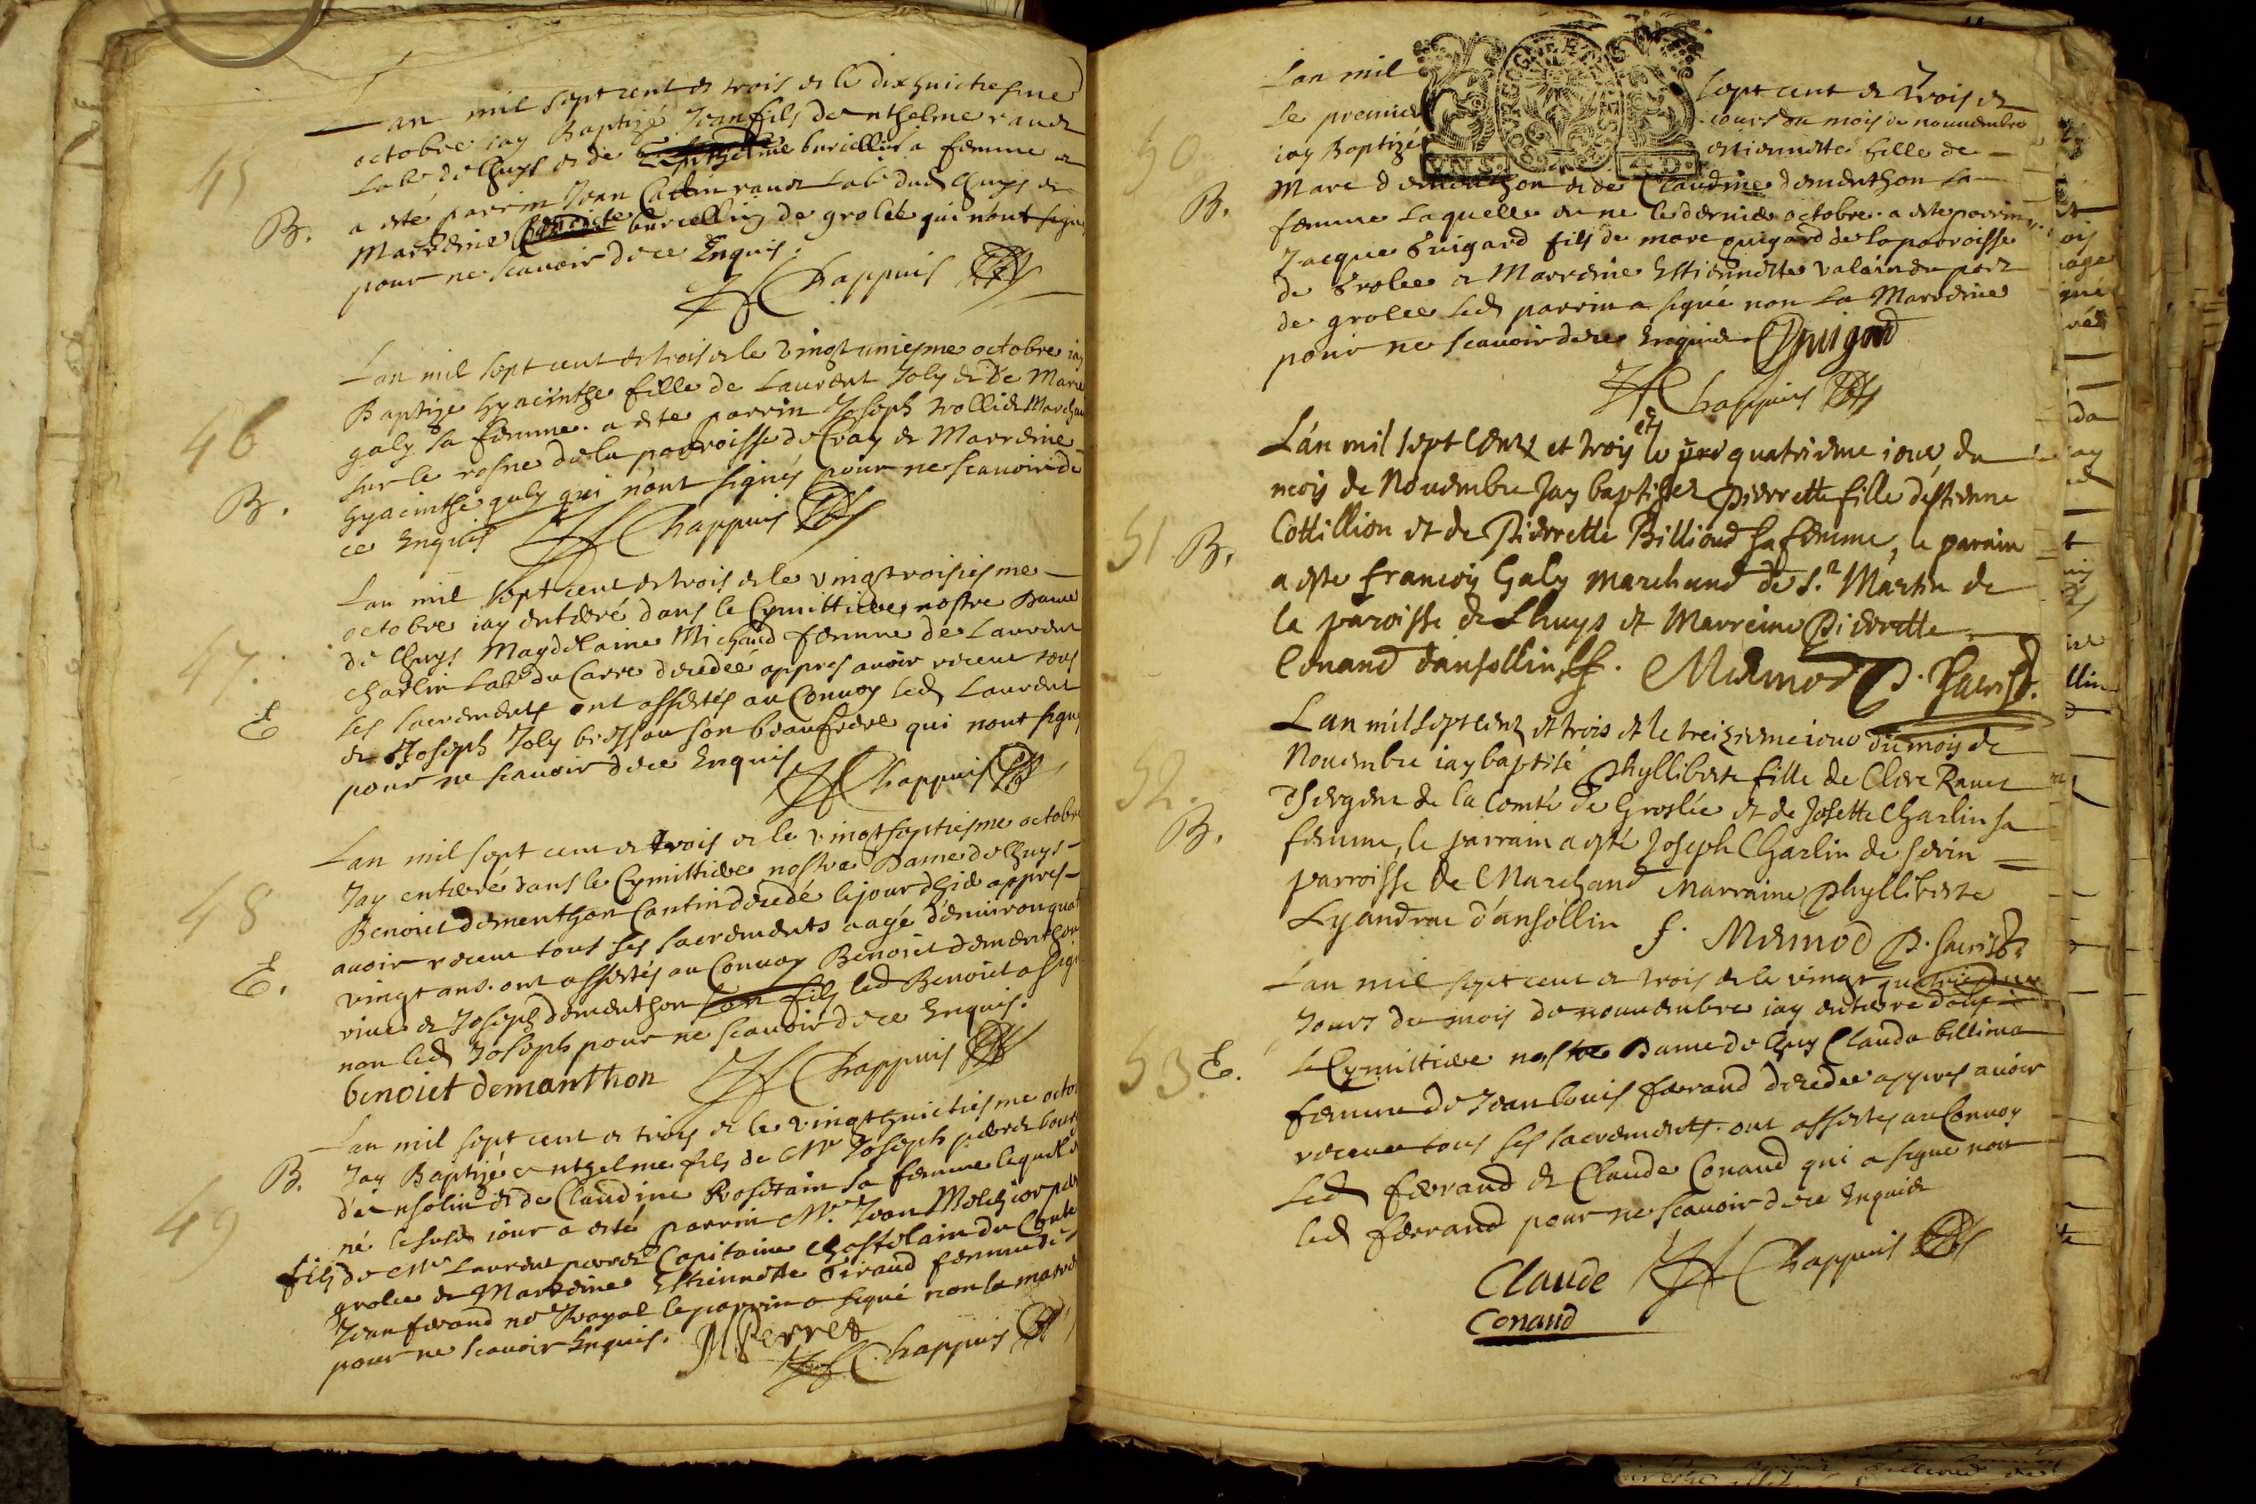 45
B.
Lan mil sept cent et trois et le dixhuictiesme
octobre iay Baptizé Jean fils danthelme ravet
Labr de lhuys et de burcellin sa femme
a esté parrin Jean ravet Labr dud lhuys et
Marreine burcellin de grolée qui n'ont signé
pour ne scavoir de ce Enquis.
Chappuis
46
B.
Lan mil sept cent et trois et le vingt uniesme octobre iay
Baptize hyacinthe fille de Laurent Joly et de Marie
galy sa femme. a este parrin Joseph trollier Marchand
sur le rosne de la parroisse de et Marreine
hyacinthe galy qui n'ont signés pour ne scavoir de
ce Enquis Chappuis
47.
E
Lan mil sept cent et trois et le vingttroisiesme
octobre iay enterré dans le Cymittiere nostre Dame
de lhuys Magdelaine Michaud femme de Laurent
charlin Labr du decedée appres avoir receu tous
ses sacrements ont assistés au Convoy led Laurent
et Joseph Joly son beaufrere qui nont signé
pour ne scavoir de ce Enquis
Chappuis
48
E.
Lan mil sept cent et trois et le vingtseptiesme octobre
Jay enterré dans le Cymittiere nostre Dame de lhuys
Benoict dementhon Cantin decedé le jour dhier appres
avoir receu tous ses sacrements aagé d'environ quatre
vingt ans. ont assistés au Convoy Benoict dementhon
et Joseph dementhon son fils led Benoict a signé
non led Joseph pour ne scavoir de ce Enquis.
benoiet demanthon Chappuis
49
B.
Lan mil sept cent et trois et le vingthuictiesme octobre
Jay Baptizé anthelme fils de Mr Joseph
d'ansolin et de Claudine Rositain sa femme lequel
né le susd iour a esté parrin Mr. Jean Melchior perret
fils de Mr Laurent perret Capitaine Chastelain du Comté
grolee et Marreine Estiennette Giraud femme de
Jean ferand no Royal le parrin a signé non la marreine
pour ne scavoir Enquis. JMPerret
Chappuis
50
B.
Lan mil sept cent et trois et
Le premier iour du mois de nouvembre
iay Baptizé estiennette fille de
Marc dementhon et de Claudine dementhon sa
femme laquelle est nee le dernier octobre. a este parrin
Jacque Guigard fils de marc guigard de la parroisse
de Grolee et Marreine Estiennette du port
de grolee led parrin a signé non la Marreine
pour ne scavoir de ce Enquise Guigard
Chappuis
51
B.
L'an mil sept Cents et trois et le quatrieme iour du
mois de Novembre Jay baptisez Pierrette fille destienne
Cottillion et de Pierrette Billioud sa femme, le parain
a este francois Galy marchand de St Martin de
la paroisse de Lhuys et Marreine Pierrette
Conand dansollin. Mermod P. Sacrist.
52.
B.
Lan mil sept cent et trois et le treizieme iour du mois de
Novembre iay baptisé Phylliberte fille de Clere Ravet
Sergent de la Comté de Groslée et de Josette Charlin sa
femme, le parrain a esté Joseph Charlin de serin
parroisse de Marchand Marraine Phylliberte
Lyandrac d'ansollin f. Mermod P. Sacrist.
53
E.
Lan mil sept cent et trois et le vingt quatrieme
Jours du mois de nouvembre iay enterre dans
le Cymittiere nostre Dame de lhuys Clauda billima
femme de Jean louis ferrand decedee appres avoir
receu tous ses sacrements. ont assistes au Convoy
led ferrand et Claude Conand qui a signe non
led ferrand pour ne scavoir de ce Enquis
Claude Chappuis
Conand